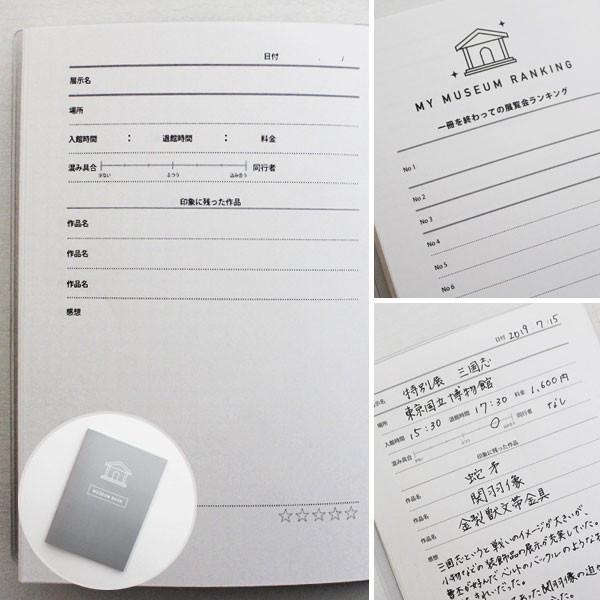 日付 . /
展示名
場所
入館時間 : 退館時間 : 料金
混み具合 少ない ふつう 込み合う 同行者
印象に残った作品
作品名
作品名
作品名
感想
☆☆☆☆☆
MUSEUM BOOK
MY MUSEUM RANKING
一冊を終わっての展覧会ランキング
No 1
No 2
No 3
No 4
No 5
No 6
日付 2019 7.15
示名 特別展 三国志
場所 東京国立博物館
入館時間 15:30 退館時間 17:30 料金 1,600円
混み具合 同行者 なし
印象に残った作品
作品名 蛇矛
作品名 関羽像
作品名 金製獣文帯金具
感想
三国志というと戦いのイメージが大きいが、
小物などの装飾品の展示が充実していた。
曹丕が好んだベルトのバックルのような
きれいだった。
あった関羽像の迫